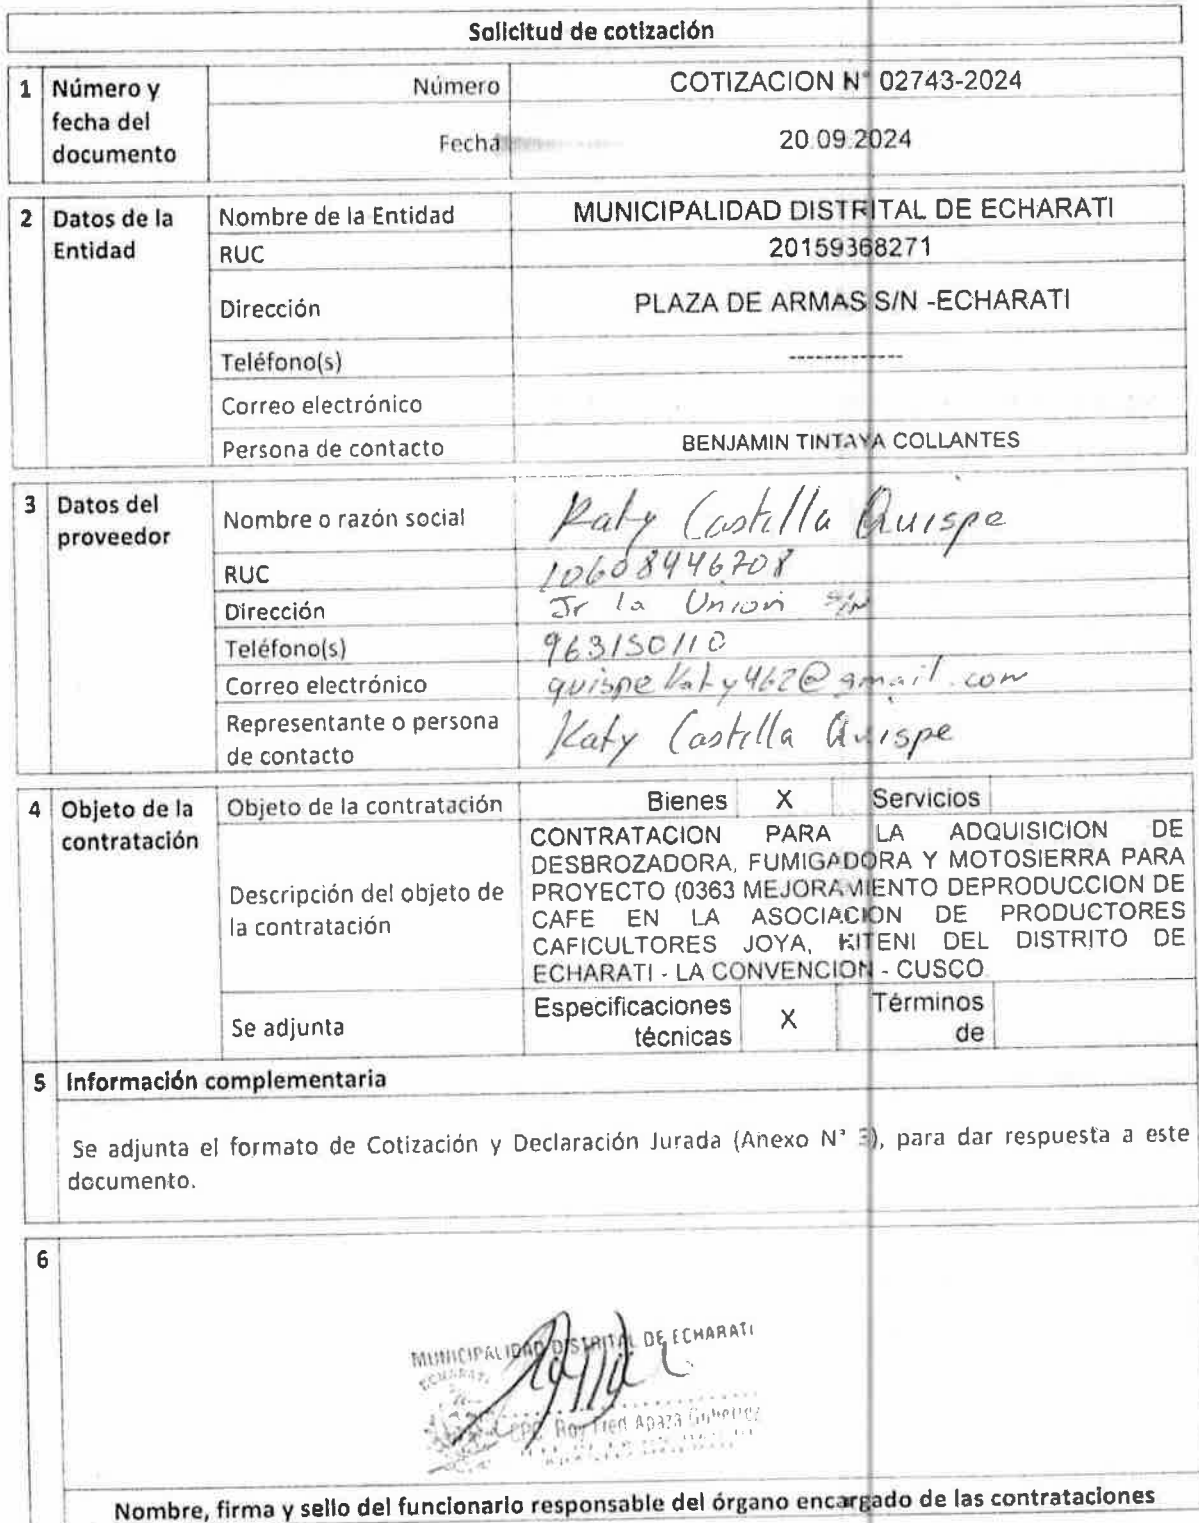 Solicitud de cotización
1 Número y fecha del documento
Número COTIZACION N° 02743-2024
Fecha 20.09.2024
2 Datos de la Entidad
Nombre de la Entidad MUNICIPALIDAD DISTRITAL DE ECHARATI
RUC 20159368271
Dirección PLAZA DE ARMAS S/N -ECHARATI
Teléfono(s) -------------
Correo electrónico
Persona de contacto BENJAMIN TINTAYA COLLANTES
3 Datos del proveedor
Nombre o razón social Katy Castilla Quispe
RUC 10608446708
Dirección Jr la Union S/N
Teléfono(s) 963150110
Correo electrónico quispekaty462@gmail.com
Representante o persona de contacto Katy Castilla Quispe
4 Objeto de la contratación
Objeto de la contratación Bienes X Servicios
Descripción del objeto de la contratación
CONTRATACION PARA LA ADQUISICION DE
DESBROZADORA, FUMIGADORA Y MOTOSIERRA PARA
PROYECTO (0363 MEJORAMIENTO DEPRODUCCION DE
CAFE EN LA ASOCIACION DE PRODUCTORES
CAFICULTORES JOYA, KITENI DEL DISTRITO DE
ECHARATI - LA CONVENCION - CUSCO
Se adjunta Especificaciones técnicas X Términos de
5 Información complementaria
Se adjunta el formato de Cotización y Declaración Jurada (Anexo N° 3), para dar respuesta a este
documento.
6
MUNICIPALIDAD DISTRITAL DE ECHARATI
ECHARATI
CPC Roy Fred Apaza Gutierrez
Nombre, firma y sello del funcionario responsable del órgano encargado de las contrataciones